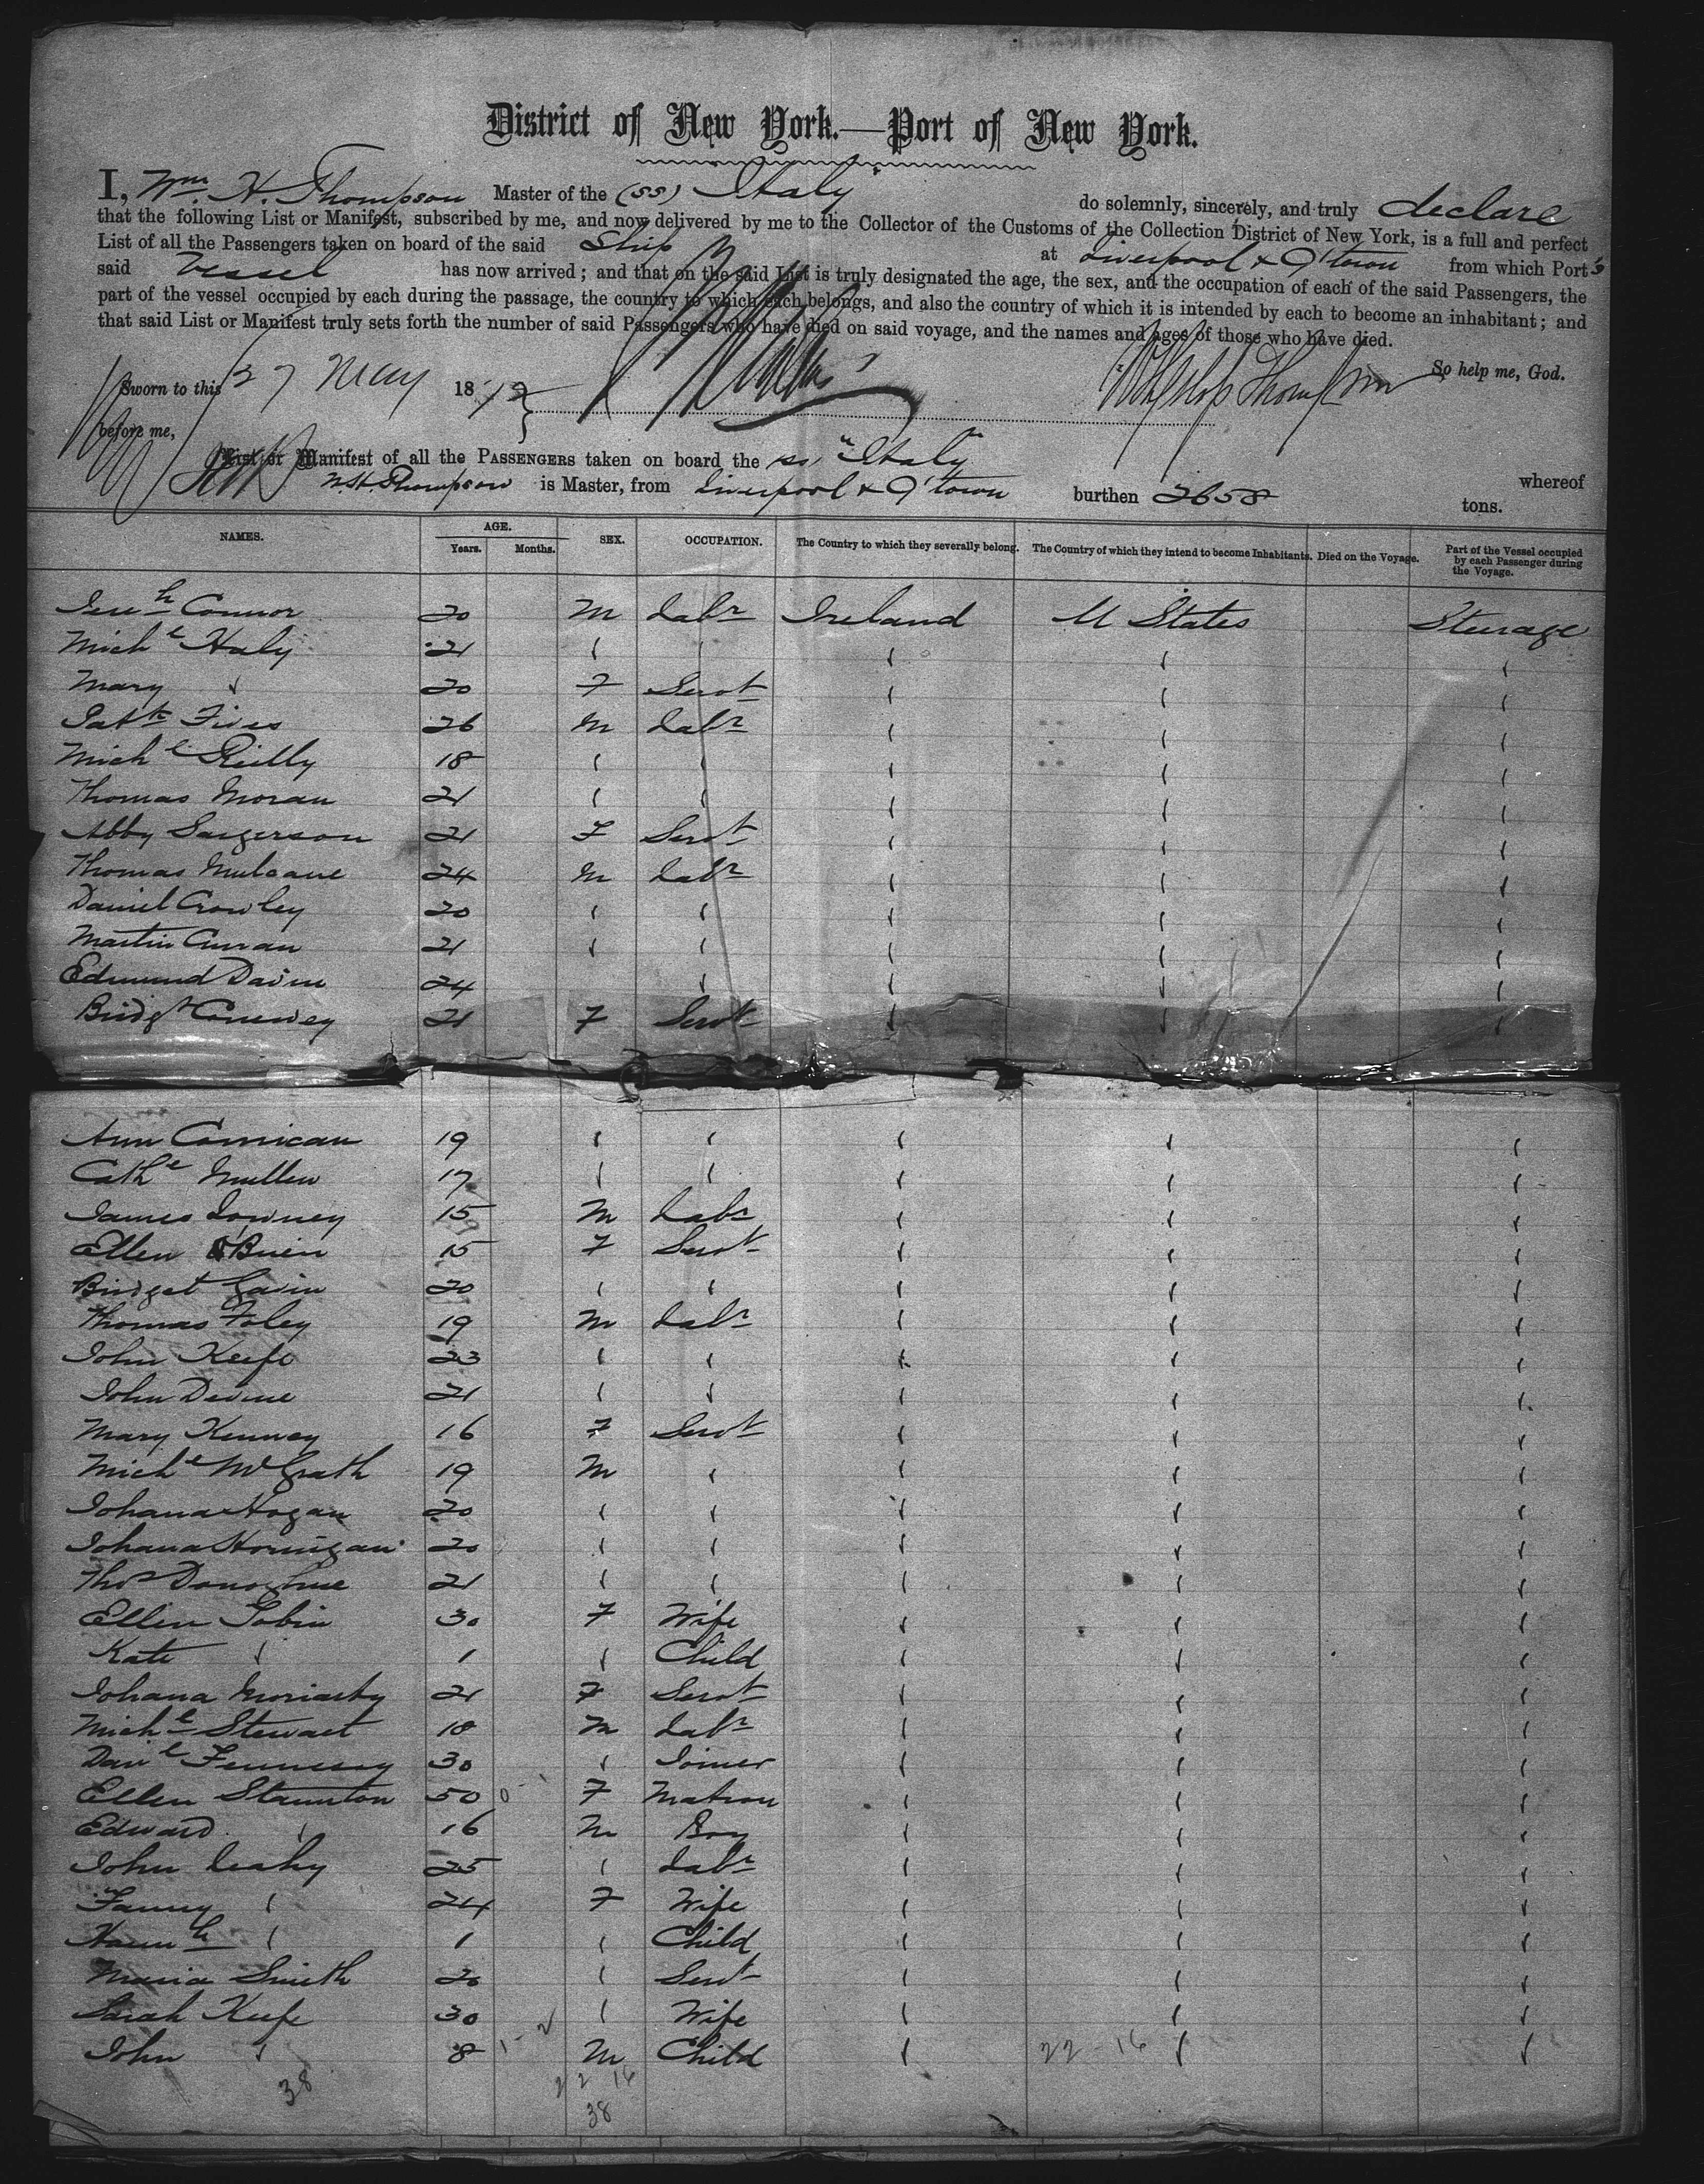 District of New York.—Port of New York.
I, Wm. H. Thompson Master of the (ss) "Italy" do solemnly, sincerely, and truly declare
that the following List or Manifest, subscribed by me, and now delivered by me to the Collector of the Customs of the Collection District of New York, is a full and perfect
List of all the Passengers taken on board of the said Ship at Liverpool & Q'town from which Ports
said Vessel has now arrived; and that on the said List is truly designated the age, the sex, and the occupation of each of the said Passengers, the
part of the vessel occupied by each during the passage, the country to which each belongs, and also the country of which it is intended by each to become an inhabitant; and
that said List or Manifest truly sets forth the number of said Passengers who have died on said voyage, and the names and ages of those who have died.
So help me, God.
Sworn to this 27 May 18
before me,
List or Manifest of all the PASSENGERS taken on board the ss, "Italy" whereof
W.H. Thompson is Master, from Liverpool & Q'town burthen 2658 tons.
NAMES. AGE. Years. Months. SEX. OCCUPATION. The Country to which they severally belong. The Country of which they intend to become Inhabitants. Died on the Voyage. Part of the Vessel occupied by each Passenger during the Voyage.
Jereh Connor 20 M Labr Ireland U States Steerage
Michl Haly 21 " " " " "
Mary " 20 F Servt " " "
Patk Fives 26 M Labr " " "
Michl Reilly 18 " " " " "
Thomas Moran 21 " " " " "
Abby Sargerson 21 F Servt " " "
Thomas Mulcane 24 M Labr " " "
Daniel Crowley 20 " " " " "
Martin Curran 21 " " " " "
Edmund Davin 24 " " " "
Bridgt 21 F Servt " " "
Ann Cornican 19 " " " " "
Cathe Mullen 17 " " " " "
James Downey 15 M Labr " " "
Ellen O'Brien 15 F Servt " " "
Bridget Gavin 20 " " " " "
Thomas Foley 19 M Labr " " "
John Keefe 23 " " " " "
John Devine 21 " " " " "
Mary Kenney 16 F Servt " " "
Michl McGrath 19 M " " " "
Johana Hogan 20 " " " " "
Johana Hornigan 20 " " " " "
Thos Donoghue 21 " " " " "
Ellen Tobin 30 F Wife " " "
Kate " 1 " Child " " "
Johana Moriarty 21 F Servt " " "
Michl Stewart 18 M Labr " " "
Danl Fennessy 30 " Joiner " " "
Ellen Staunton 50 F Matron " " "
Edward " 16 M Boy " " "
John Leahy 25 " Labr " " "
Fanny " 24 F Wife " " "
Hannh " 1 " Child " " "
Maria Smith 20 " Servt " " "
Sarah Keefe 30 " Wife " " "
John " 8 M Child " 22-16 " "
38 22 16
38